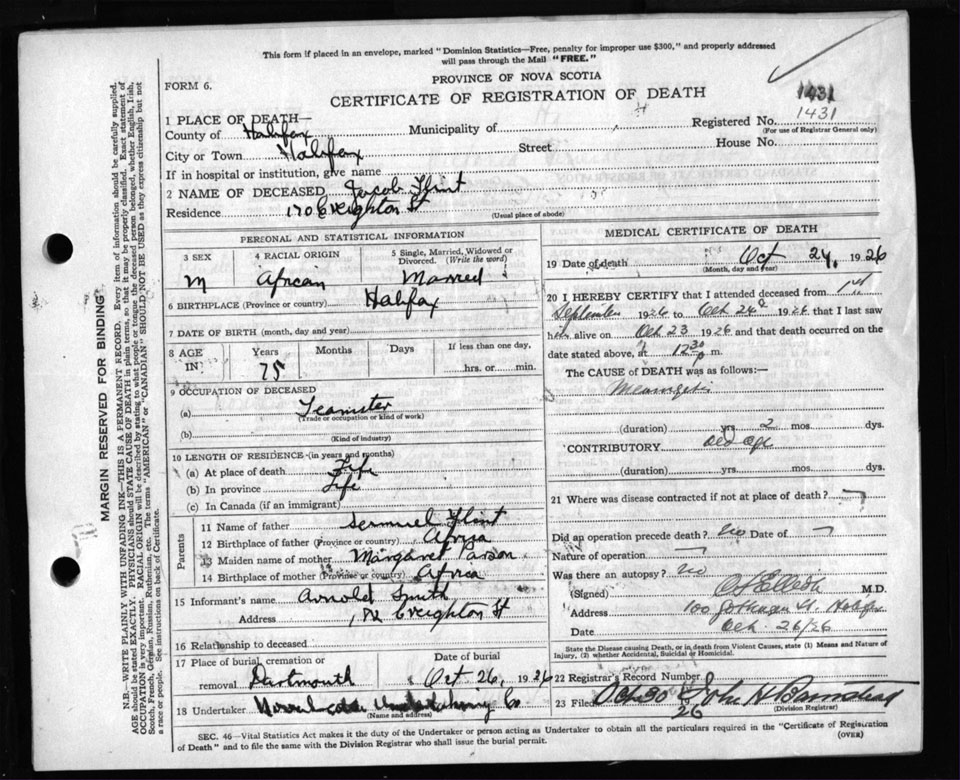 This form if placed in an envelope, marked "Dominion Statistics—Free, penalty for improper use $300," and properly addressed
will pass through the Mail "FREE."
PROVINCE OF NOVA SCOTIA
FORM 6.
CERTIFICATE OF REGISTRATION OF DEATH
1431
1 PLACE OF DEATH—
County of Halifax Municipality of Registered No. 1431
(For use of Registrar General only)
City or Town Halifax Street House No.
If in hospital or institution, give name
2 NAME OF DECEASED Jacob Flint
Residence 170 Creighton St
(Usual place of abode)
PERSONAL AND STATISTICAL INFORMATION
3 SEX 4 RACIAL ORIGIN 5 Single, Married, Widowed or
Divorced. (Write the word)
M African Married
6 BIRTHPLACE (Province or country) Halifax
7 DATE OF BIRTH (month, day and year)
8 AGE Years Months Days If less than one day,
IN 75 hrs. or min.
9 OCCUPATION OF DECEASED
(a) Teamster
(Trade or occupation or kind of work)
(b)
(Kind of industry)
10 LENGTH OF RESIDENCE (in years and months)
(a) At place of death Life
(b) In province Life
(c) In Canada (if an immigrant)
Parents
11 Name of father Flint
12 Birthplace of father (Province or country) Africa
13 Maiden name of mother Margaret
14 Birthplace of mother (Province or country) Africa
15 Informant's name Arnold Smith
Address Creighton St
16 Relationship to deceased
17 Place of burial, cremation or Date of burial
removal Dartmouth Oct 26, 1926
18 Undertaker Undertaking Co
(Name and address)
MEDICAL CERTIFICATE OF DEATH
19 Date of death Oct 24, 1926
(Month, day and year)
20 I HEREBY CERTIFY that I attended deceased from 1st
September 1926 to Oct 24 1926 that I last saw
him alive on Oct 23 1926 and that death occurred on the
date stated above, at 12 30 m.
The CAUSE of DEATH was as follows:—
(duration) yrs. 2 mos. dys.
CONTRIBUTORY Old Age
(duration) yrs. mos. dys.
21 Where was disease contracted if not at place of death?
Did an operation precede death? no Date of
Nature of operation
Was there an autopsy? no
(Signed) M.D.
Address 100 St. Halifax
Date Oct. 26/26
State the Disease causing Death, or in death from Violent Causes, state (1) Means and Nature of
Injury, (2) whether Accidental, Suicidal or Homicidal.
22 Registrar's Record Number
23 Filed Oct 30 1926 John H Barnstead
(Division Registrar)
SEC. 46—Vital Statistics Act makes it the duty of the Undertaker or person acting as Undertaker to obtain all the particulars required in the "Certificate of Registration
of Death" and to file the same with the Division Registrar who shall issue the burial permit. (OVER)
MARGIN RESERVED FOR BINDING
N.B.—WRITE PLAINLY WITH UNFADING INK—THIS IS A PERMANENT RECORD. Every item of information should be carefully supplied.
AGE should be stated EXACTLY. PHYSICIANS should STATE CAUSE OF DEATH in plain terms, so that it may be properly classified. Exact statement of
OCCUPATION is very important. RACIAL ORIGIN will be described by stating to what people or tongue the deceased person belonged, whether English, Irish,
Scotch, French, German, Russian, Ruthenian, etc. The terms "AMERICAN" or "CANADIAN" SHOULD NOT BE USED as they express citizenship but not
a race or people. See instructions on back of Certificate.